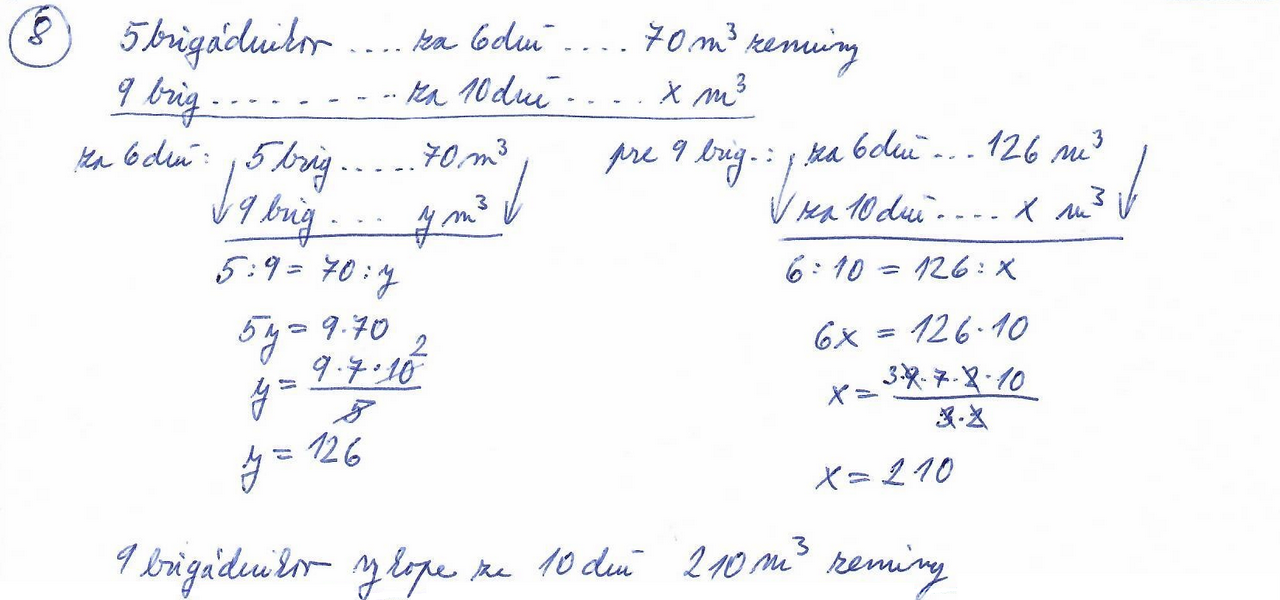 8
5 brigádnikov .... za 6 dní .... 70 m³ zeminy
9 brig ......... za 10 dní ..... x m³
za 6 dní: 5 brig ..... 70 m³
9 brig .... y m³
5 : 9 = 70 : y
5y = 9·70
y = 9·7·10 2 / 5
y = 126
pre 9 brig.: za 6 dní ... 126 m³
za 10 dní .... x m³
6 : 10 = 126 : x
6x = 126·10
x = 3·9·7·2·10 / 3·2
x = 210
9 brigádnikov vykope za 10 dní 210 m³ zeminy